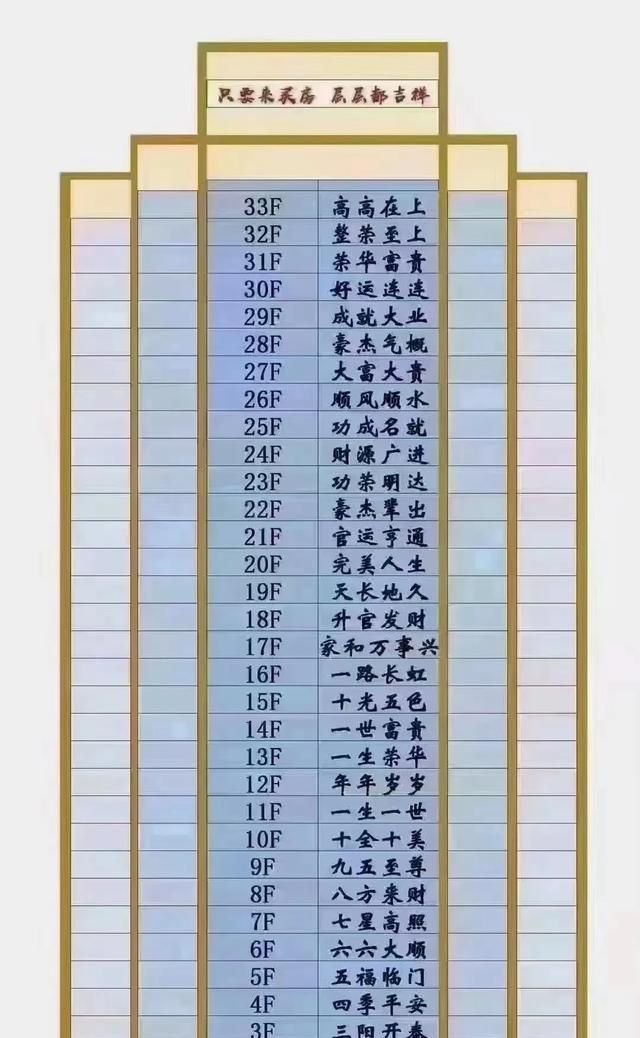 只要来买房 层层都吉祥
33F 高高在上
32F 整荣至上
31F 荣华富贵
30F 好运连连
29F 成就大业
28F 豪杰气概
27F 大富大贵
26F 顺风顺水
25F 功成名就
24F 财源广进
23F 功荣明达
22F 豪杰辈出
21F 官运亨通
20F 完美人生
19F 天长地久
18F 升官发财
17F 家和万事兴
16F 一路长虹
15F 十光五色
14F 一世富贵
13F 一生荣华
12F 年年岁岁
11F 一生一世
10F 十全十美
9F 九五至尊
8F 八方来财
7F 七星高照
6F 六六大顺
5F 五福临门
4F 四季平安
3F 三阳开泰